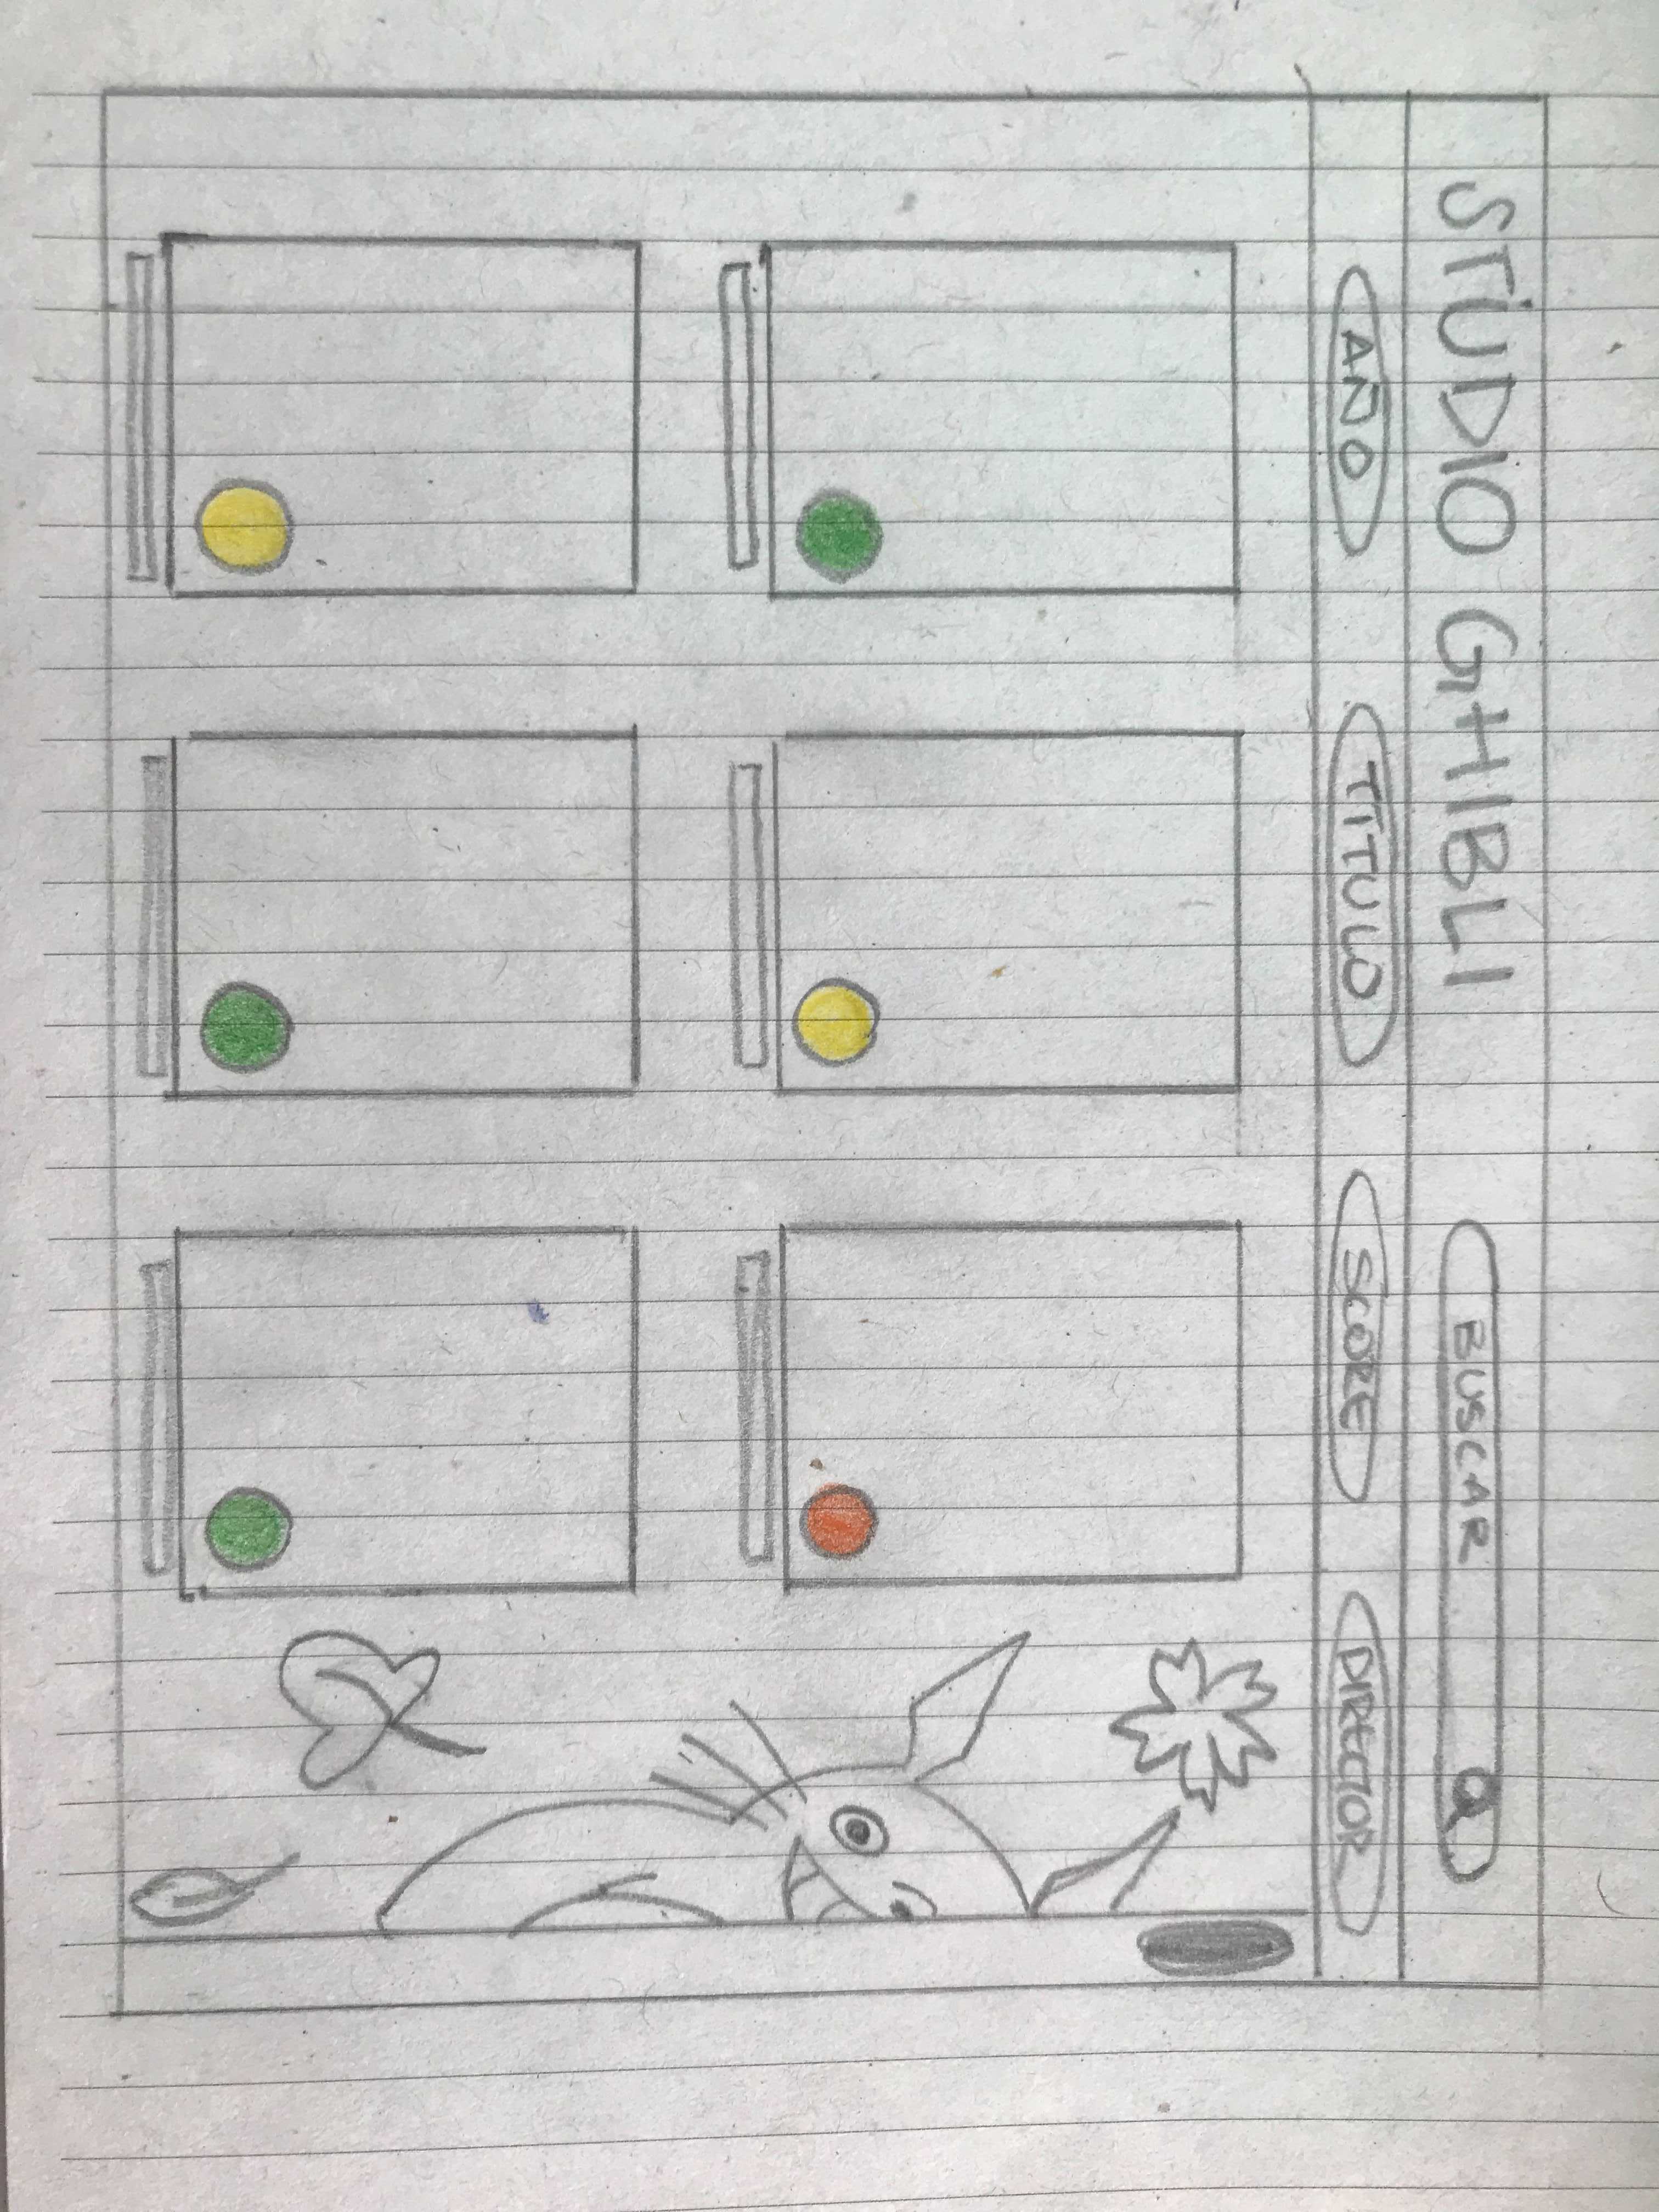 STUDIO GHIBLI
BUSCAR
AÑO TITULO SCORE DIRECTOR